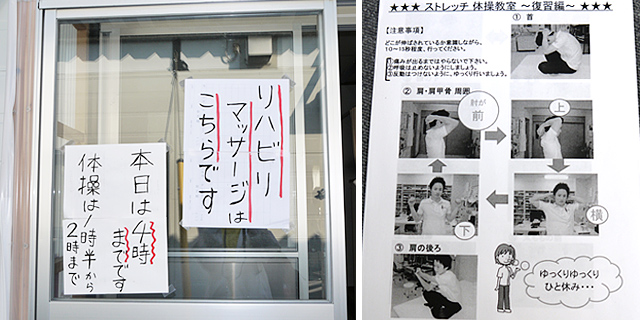 リハビリ
マッサージは
こちらです
本日は4時
までです
体操は1時半から
2時まで
★★★ ストレッチ 体操教室 ～復習編～ ★★★
① 首
【注意事項】
どこが伸ばされているか意識しながら、
10～15秒程度、行ってください。
①痛みが出るまではやらないで下さい。
②呼吸は止めないようにしましょう。
③反動はつけないように、ゆっくり行いましょう。
② 肩・肩甲骨 周囲
肘が
前
上
横
下
③ 肩の後ろ
ゆっくりゆっくり
ひと休み・・・